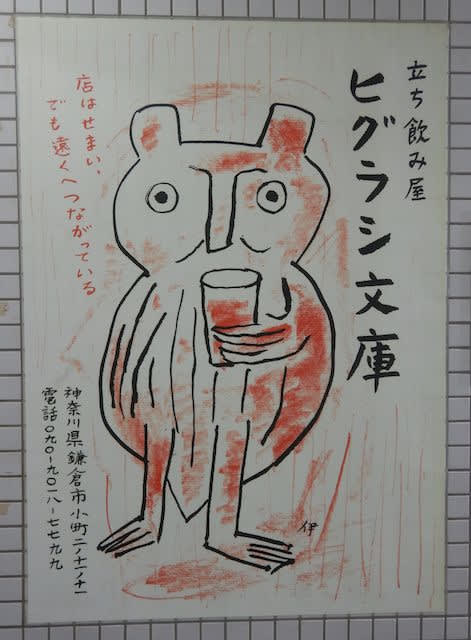 立ち飲み屋
ヒグラシ文庫
店はせまい、
でも遠くへつながっている
神奈川県鎌倉市小町二ノ十一ノ十一
電話〇九〇-九〇一八-七七九九
伊